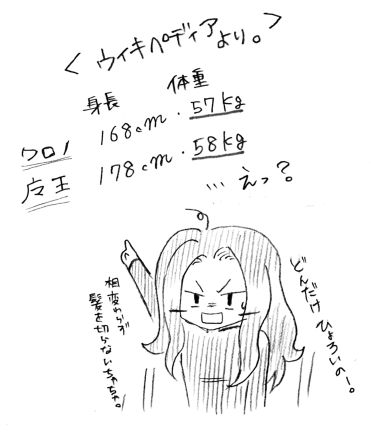 <ウィキペディアより。>
身長 体重
クロノ 168cm・57kg
魔王 178cm・58kg
…えっ？
どんだけ
ひょろいの!。
相変わらず
髪を切らないちゃちゃ。